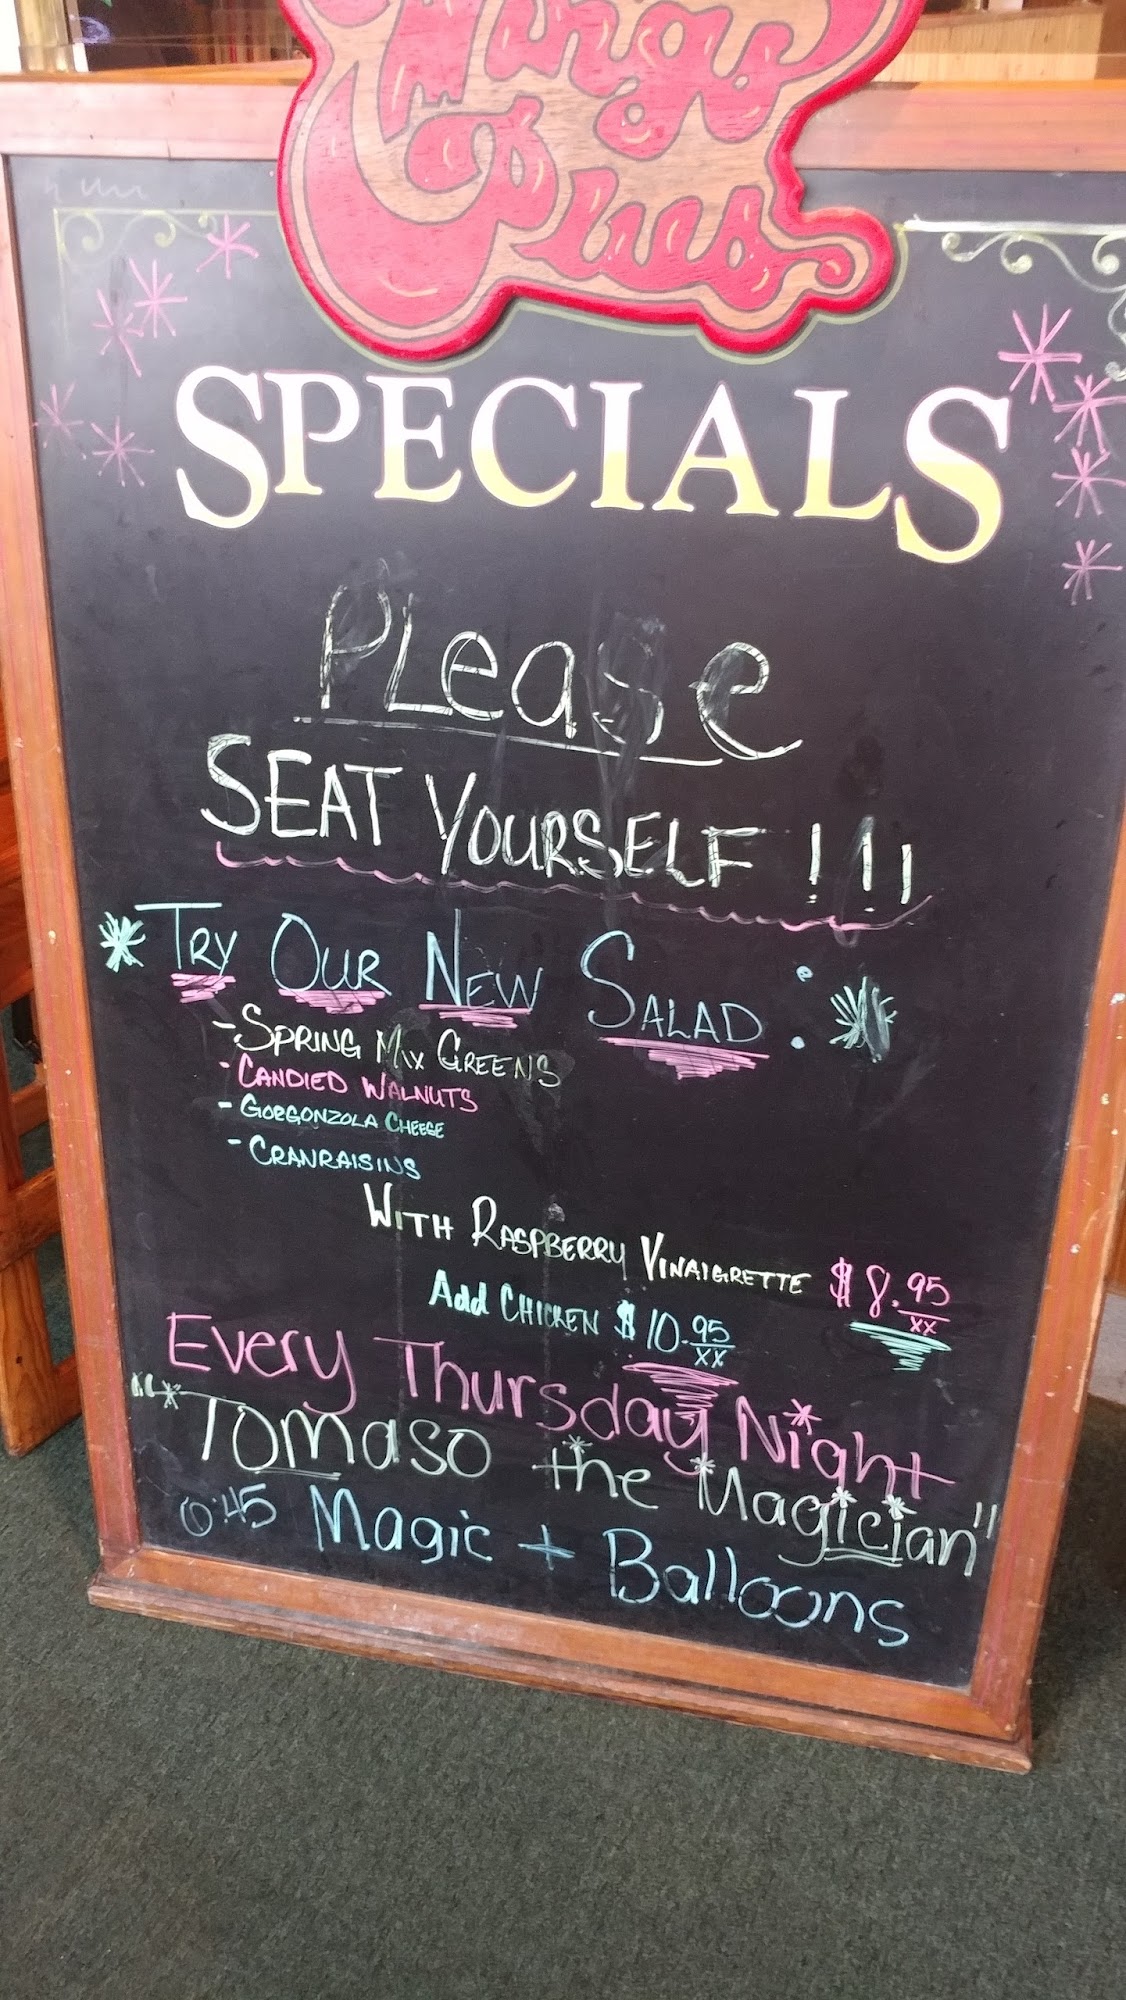 Wings
Plus
SPECIALS
PLease
SEAT YOURSELF!!!
* TRY OUR NEW SALAD : *
- SPRING MIX GREENS
- CANDIED WALNUTS
- GORGONZOLA CHEESE
- CRANRAISINS
WITH RASPBERRY VINAIGRETTE $8.95/xx
Add CHICKEN $10.95/xx
Every Thursday Night
"Tomaso the Magician"
6:45 Magic + Balloons